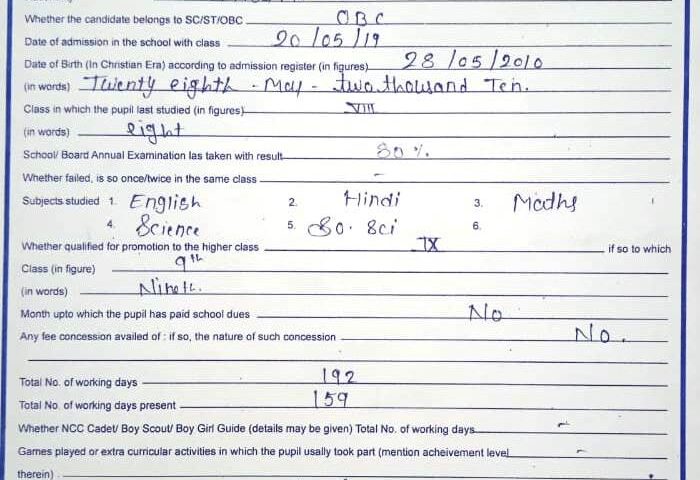 Whether the candidate belongs to SC/ST/OBC OBC
Date of admission in the school with class 20/05/19
Date of Birth (In Christian Era) according to admission register (in figures) 28/05/2010
(in words) Twenty eighth - May - two thousand Ten.
Class in which the pupil last studied (in figures) VIII
(in words) eight
School/ Board Annual Examination las taken with result 80%.
Whether failed, is so once/twice in the same class -
Subjects studied 1. English 2. Hindi 3. Maths
4. Science 5. So. Sci 6.
Whether qualified for promotion to the higher class IX if so to which
Class (in figure) 9th
(in words) Nineth.
Month upto which the pupil has paid school dues No
Any fee concession availed of : if so, the nature of such concession No.
Total No. of working days 192
Total No. of working days present 159
Whether NCC Cadet/ Boy Scout/ Boy Girl Guide (details may be given) Total No. of working days -
Games played or extra curricular activities in which the pupil usally took part (mention acheivement level -
therein)